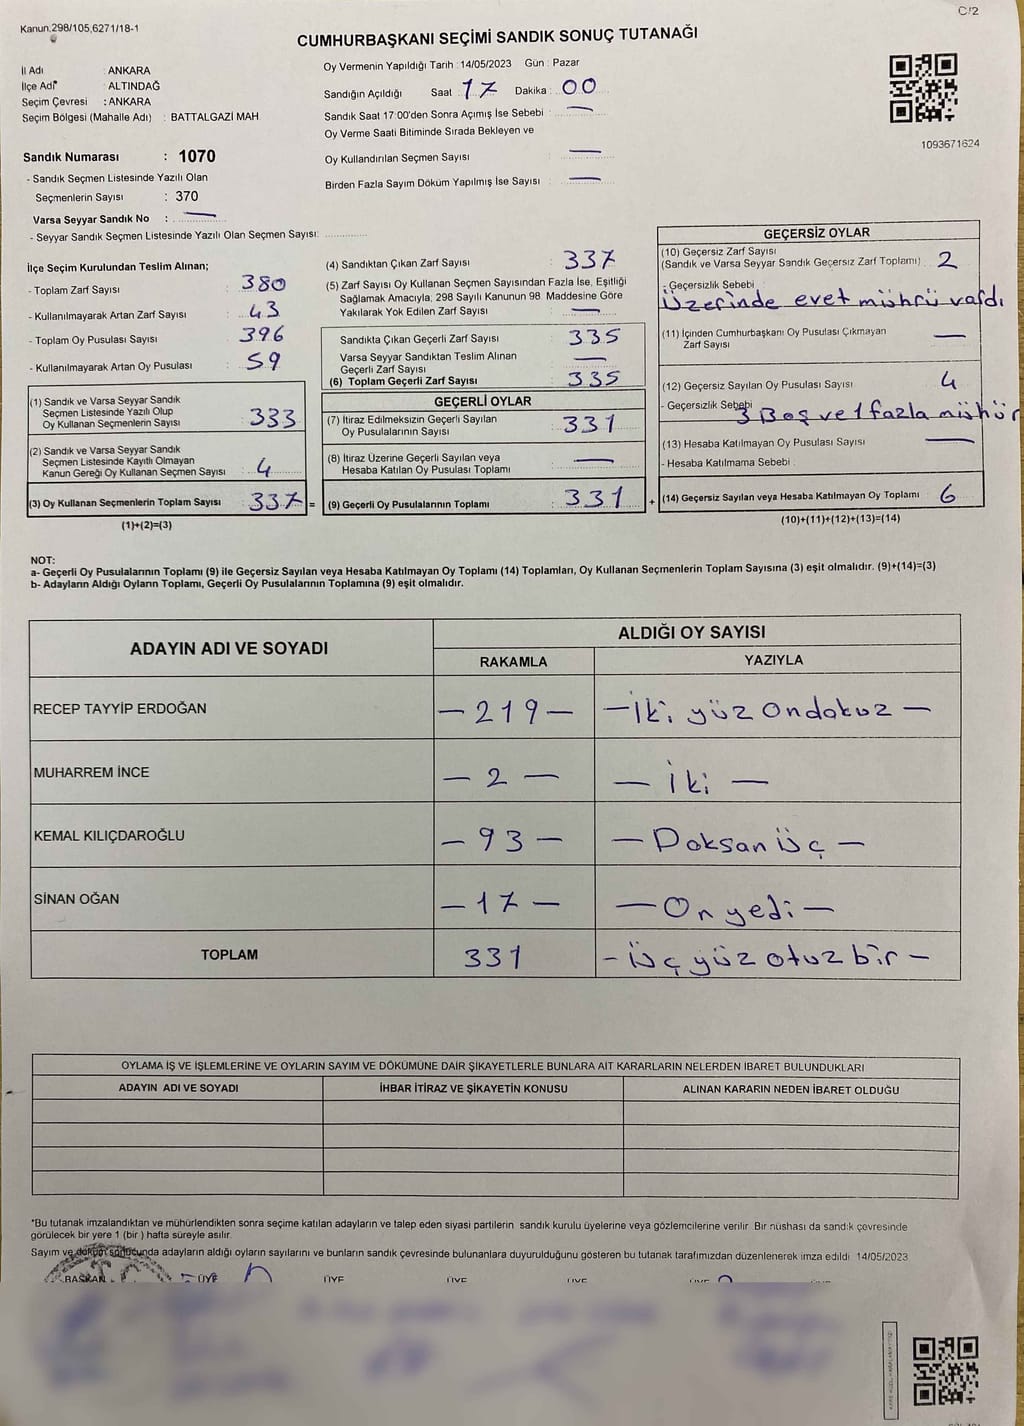 C/2
Kanun,298/105,6271/18-1
CUMHURBAŞKANI SEÇİMİ SANDIK SONUÇ TUTANAĞI
İl Adı : ANKARA
İlçe Adı : ALTINDAĞ
Seçim Çevresi : ANKARA
Seçim Bölgesi (Mahalle Adı) : BATTALGAZİ MAH
Oy Vermenin Yapıldığı Tarih : 14/05/2023 Gün : Pazar
Sandığın Açıldığı Saat : 17 Dakika : 00
Sandık Saat 17:00'den Sonra Açımış İse Sebebi : —
Oy Verme Saati Bitiminde Sırada Bekleyen ve
Oy Kullandırılan Seçmen Sayısı : —
Birden Fazla Sayım Döküm Yapılmış İse Sayısı : —
1093671624
Sandık Numarası : 1070
- Sandık Seçmen Listesinde Yazılı Olan
Seçmenlerin Sayısı : 370
Varsa Seyyar Sandık No : —
- Seyyar Sandık Seçmen Listesinde Yazılı Olan Seçmen Sayısı:
İlçe Seçim Kurulundan Teslim Alınan;
- Toplam Zarf Sayısı : 380
- Kullanılmayarak Artan Zarf Sayısı : 43
- Toplam Oy Pusulası Sayısı : 396
- Kullanılmayarak Artan Oy Pusulası : 59
(1) Sandık ve Varsa Seyyar Sandık
Seçmen Listesinde Yazılı Olup
Oy Kullanan Seçmenlerin Sayısı : 333
(2) Sandık ve Varsa Seyyar Sandık
Seçmen Listesinde Kayıtlı Olmayan
Kanun Gereği Oy Kullanan Seçmen Sayısı : 4
(3) Oy Kullanan Seçmenlerin Toplam Sayısı : 337 =
(1)+(2)=(3)
(4) Sandıktan Çıkan Zarf Sayısı : 337
(5) Zarf Sayısı Oy Kullanan Seçmen Sayısından Fazla İse, Eşitliği
Sağlamak Amacıyla, 298 Sayılı Kanunun 98. Maddesine Göre
Yakılarak Yok Edilen Zarf Sayısı : —
Sandıkta Çıkan Geçerli Zarf Sayısı : 335
Varsa Seyyar Sandıktan Teslim Alınan
Geçerli Zarf Sayısı : —
(6) Toplam Geçerli Zarf Sayısı : 335
GEÇERLİ OYLAR
(7) İtiraz Edilmeksizin Geçerli Sayılan
Oy Pusulalarının Sayısı : 331
(8) İtiraz Üzerine Geçerli Sayılan veya
Hesaba Katılan Oy Pusulası Toplamı : —
(9) Geçerli Oy Pusulalarının Toplamı : 331 +
GEÇERSİZ OYLAR
(10) Geçersiz Zarf Sayısı
(Sandık ve Varsa Seyyar Sandık Geçersiz Zarf Toplamı) : 2
- Geçersizlik Sebebi :
Üzerinde evet mührü vardı
(11) İçinden Cumhurbaşkanı Oy Pusulası Çıkmayan
Zarf Sayısı : —
(12) Geçersiz Sayılan Oy Pusulası Sayısı : 4
- Geçersizlik Sebebi
3 Boş ve 1 fazla mühür
(13) Hesaba Katılmayan Oy Pusulası Sayısı : —
- Hesaba Katılmama Sebebi :
(14) Geçersiz Sayılan veya Hesaba Katılmayan Oy Toplamı : 6
(10)+(11)+(12)+(13)=(14)
NOT:
a- Geçerli Oy Pusulalarının Toplamı (9) ile Geçersiz Sayılan veya Hesaba Katılmayan Oy Toplamı (14) Toplamları, Oy Kullanan Seçmenlerin Toplam Sayısına (3) eşit olmalıdır. (9)+(14)=(3)
b- Adayların Aldığı Oyların Toplamı, Geçerli Oy Pusulalarının Toplamına (9) eşit olmalıdır.
ADAYIN ADI VE SOYADI
ALDIĞI OY SAYISI
RAKAMLA YAZIYLA
RECEP TAYYİP ERDOĞAN — 219 — — İki yüz Ondokuz —
MUHARREM İNCE — 2 — — İki —
KEMAL KILIÇDAROĞLU — 93 — — Doksan üç —
SİNAN OĞAN — 17 — — On yedi —
TOPLAM 331 - üç yüz otuz bir -
OYLAMA İŞ VE İŞLEMLERİNE VE OYLARIN SAYIM VE DÖKÜMÜNE DAİR ŞİKAYETLERLE BUNLARA AİT KARARLARIN NELERDEN İBARET BULUNDUKLARI
ADAYIN ADI VE SOYADI İHBAR İTİRAZ VE ŞİKAYETİN KONUSU ALINAN KARARIN NEDEN İBARET OLDUĞU
*Bu tutanak imzalandıktan ve mühürlendikten sonra seçime katılan adayların ve talep eden siyasi partilerin sandık kurulu üyelerine veya gözlemcilerine verilir. Bir nüshası da sandık çevresinde
görülecek bir yere 1 (bir) hafta süreyle asılır.
Sayım ve döküm sonucunda adayların aldığı oyların sayılarını ve bunların sandık çevresinde bulunanlara duyurulduğunu gösteren bu tutanak tarafımızdan düzenlenerek imza edildi. 14/05/2023
BAŞKAN ÜYE ÜYE ÜYE ÜYE ÜYE ÜYE